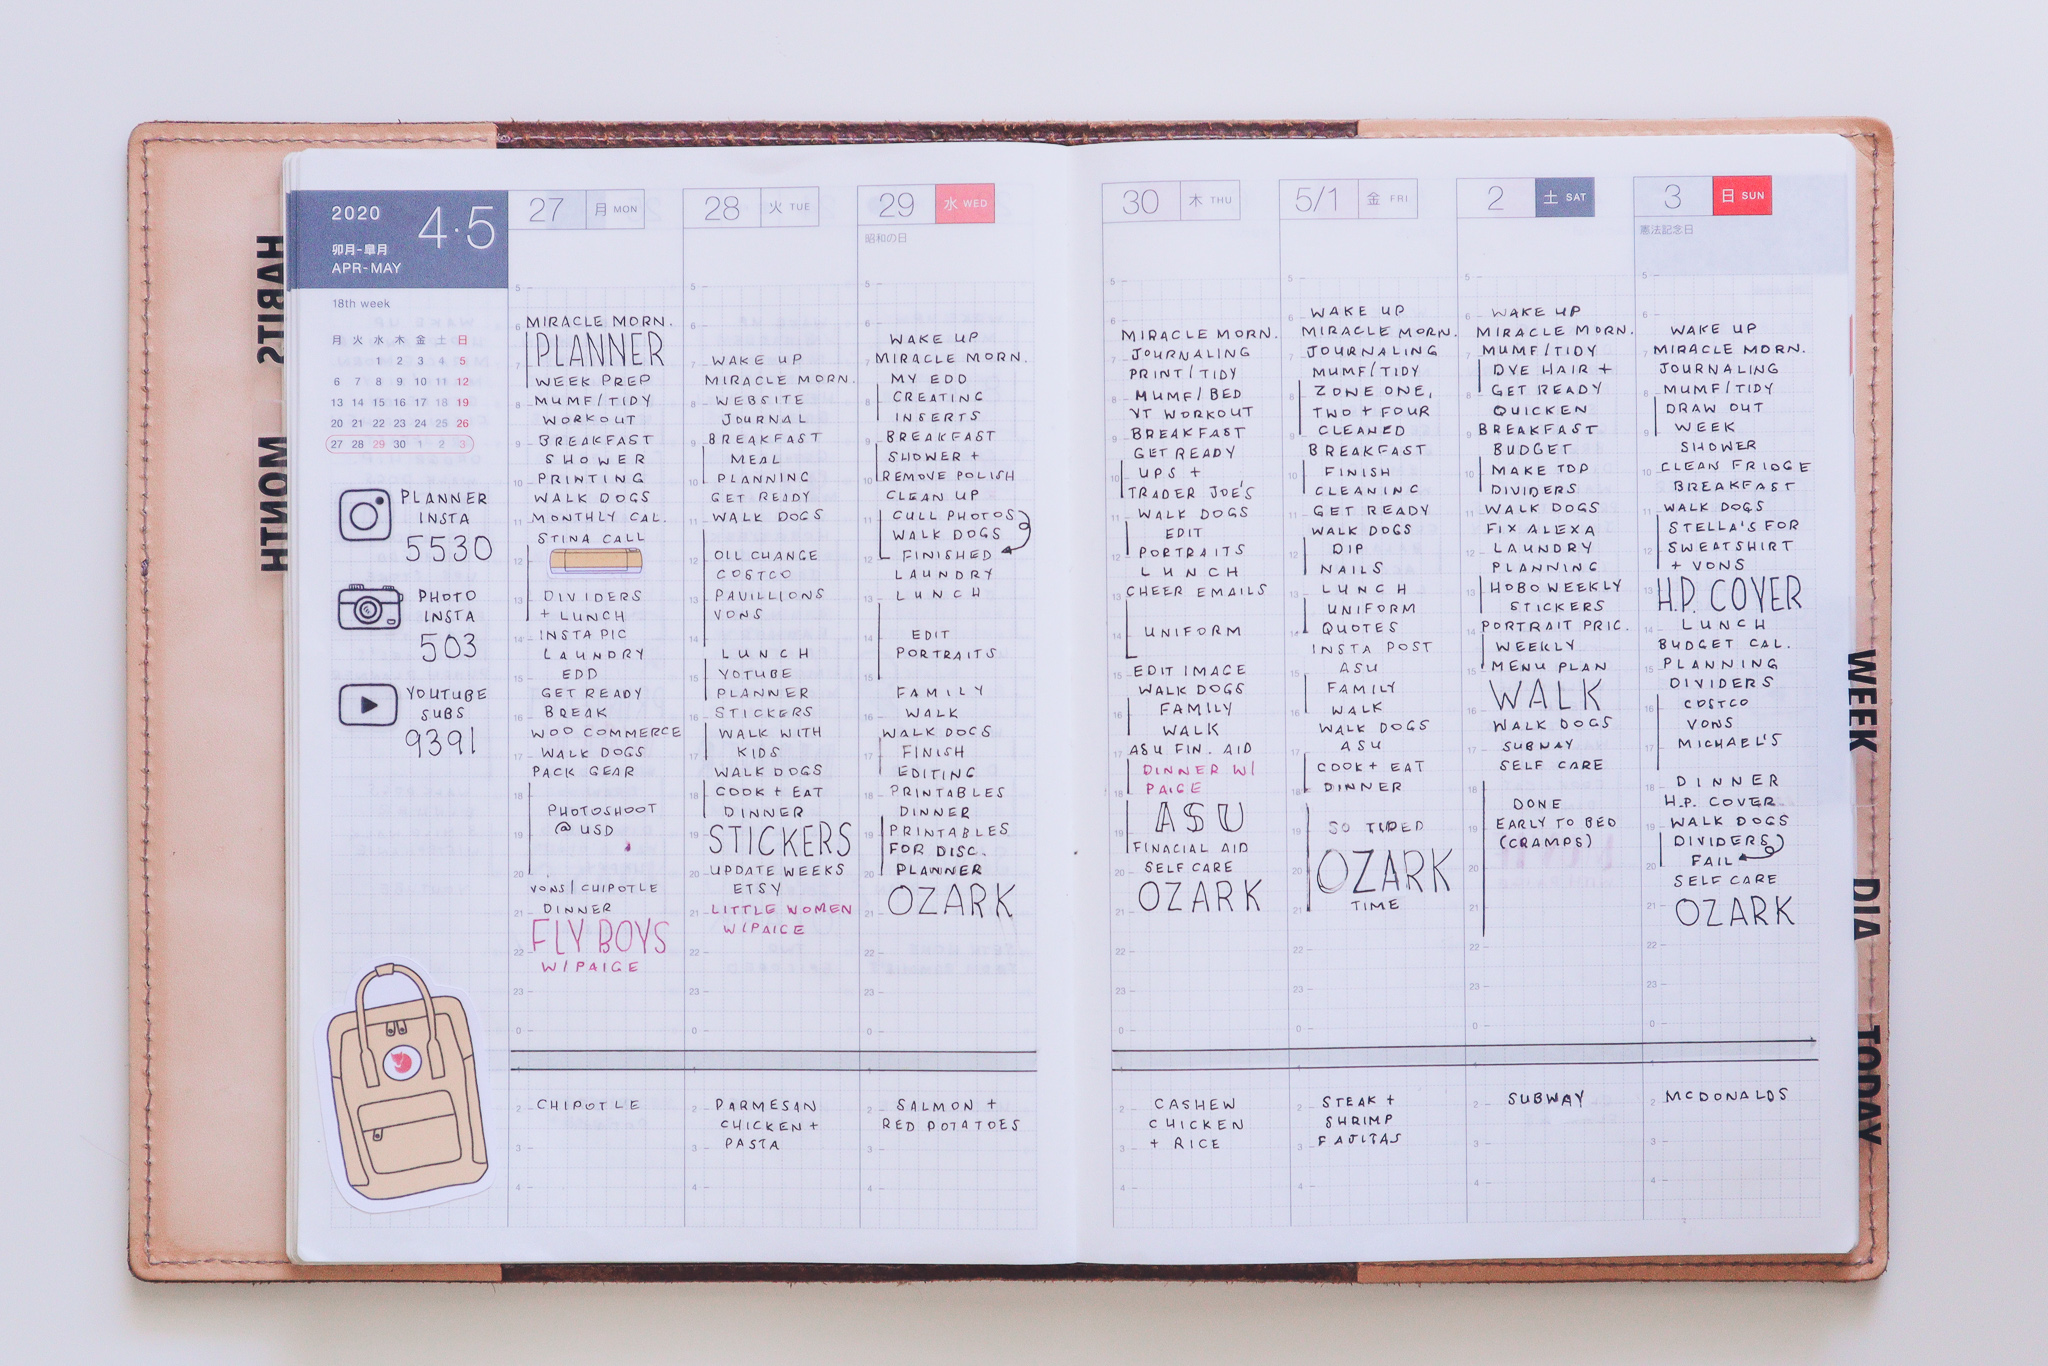 HABITS
MONTH
2020
4·5
卯月-皐月
APR-MAY
18th week
月 火 水 木 金 土 日
1 2 3 4 5
6 7 8 9 10 11 12
13 14 15 16 17 18 19
20 21 22 23 24 25 26
27 28 29 30 1 2 3
PLANNER
INSTA
5530
PHOTO
INSTA
503
YOUTUBE
SUBS
9391
27 月 MON
MIRACLE MORN.
PLANNER
WEEK PREP
MUMF/TIDY
WORKOUT
BREAKFAST
SHOWER
PRINTING
WALK DOGS
MONTHLY CAL.
STINA CALL
DIVIDERS
+ LUNCH
INSTA PIC
LAUNDRY
EDD
GET READY
BREAK
WOO COMMERCE
WALK DOGS
PACK GEAR
PHOTOSHOOT
@ USD
VONS/CHIPOTLE
DINNER
FLY BOYS
W/PAIGE
CHIPOTLE
28 火 TUE
WAKE UP
MIRACLE MORN.
WEBSITE
JOURNAL
BREAKFAST
MEAL
PLANNING
GET READY
WALK DOGS
OIL CHANGE
COSTCO
PAVILLIONS
VONS
LUNCH
YOTUBE
PLANNER
STICKERS
WALK WITH
KIDS
WALK DOGS
COOK + EAT
DINNER
STICKERS
UPDATE WEEKS
ETSY
LITTLE WOMEN
W/PAIGE
PARMESAN
CHICKEN +
PASTA
29 水 WED
昭和の日
WAKE UP
MIRACLE MORN.
MY EDD
CREATING
INSERTS
BREAKFAST
SHOWER +
REMOVE POLISH
CLEAN UP
CULL PHOTOS
WALK DOGS
FINISHED
LAUNDRY
LUNCH
EDIT
PORTRAITS
FAMILY
WALK
WALK DOGS
FINISH
EDITING
PRINTABLES
DINNER
PRINTABLES
FOR DISC.
PLANNER
OZARK
SALMON +
RED POTATOES
30 木 THU
MIRACLE MORN.
JOURNALING
PRINT/TIDY
MUMF/BED
YT WORKOUT
BREAKFAST
GET READY
UPS +
TRADER JOE'S
WALK DOGS
EDIT
PORTRAITS
LUNCH
CHEER EMAILS
UNIFORM
EDIT IMAGE
WALK DOGS
FAMILY
WALK
ASU FIN. AID
DINNER W/
PAIGE
ASU
FINACIAL AID
SELF CARE
OZARK
CASHEW
CHICKEN
+ RICE
5/1 金 FRI
WAKE UP
MIRACLE MORN.
JOURNALING
MUMF/TIDY
ZONE ONE,
TWO + FOUR
CLEANED
BREAKFAST
FINISH
CLEANING
GET READY
WALK DOGS
DIP
NAILS
LUNCH
UNIFORM
QUOTES
INSTA POST
ASU
FAMILY
WALK
WALK DOGS
ASU
COOK + EAT
DINNER
SO TIRED
OZARK
TIME
STEAK +
SHRIMP
FAJITAS
2 土 SAT
WAKE UP
MIRACLE MORN.
MUMF/TIDY
DYE HAIR +
GET READY
QUICKEN
BREAKFAST
BUDGET
MAKE TDP
DIVIDERS
WALK DOGS
FIX ALEXA
LAUNDRY
PLANNING
HOBO WEEKLY
STICKERS
PORTRAIT PRIC.
WEEKLY
MENU PLAN
WALK
WALK DOGS
SUBWAY
SELF CARE
DONE
EARLY TO BED
(CRAMPS)
SUBWAY
3 日 SUN
憲法記念日
WAKE UP
MIRACLE MORN.
JOURNALING
MUMF/TIDY
DRAW OUT
WEEK
SHOWER
CLEAN FRIDGE
BREAKFAST
WALK DOGS
STELLA'S FOR
SWEATSHIRT
+ VONS
H.P. COVER
LUNCH
BUDGET CAL.
PLANNING
DIVIDERS
COSTCO
VONS
MICHAEL'S
DINNER
H.P. COVER
WALK DOGS
DIVIDERS
FAIL
SELF CARE
OZARK
MCDONALDS
WEEK
DIA
TODAY